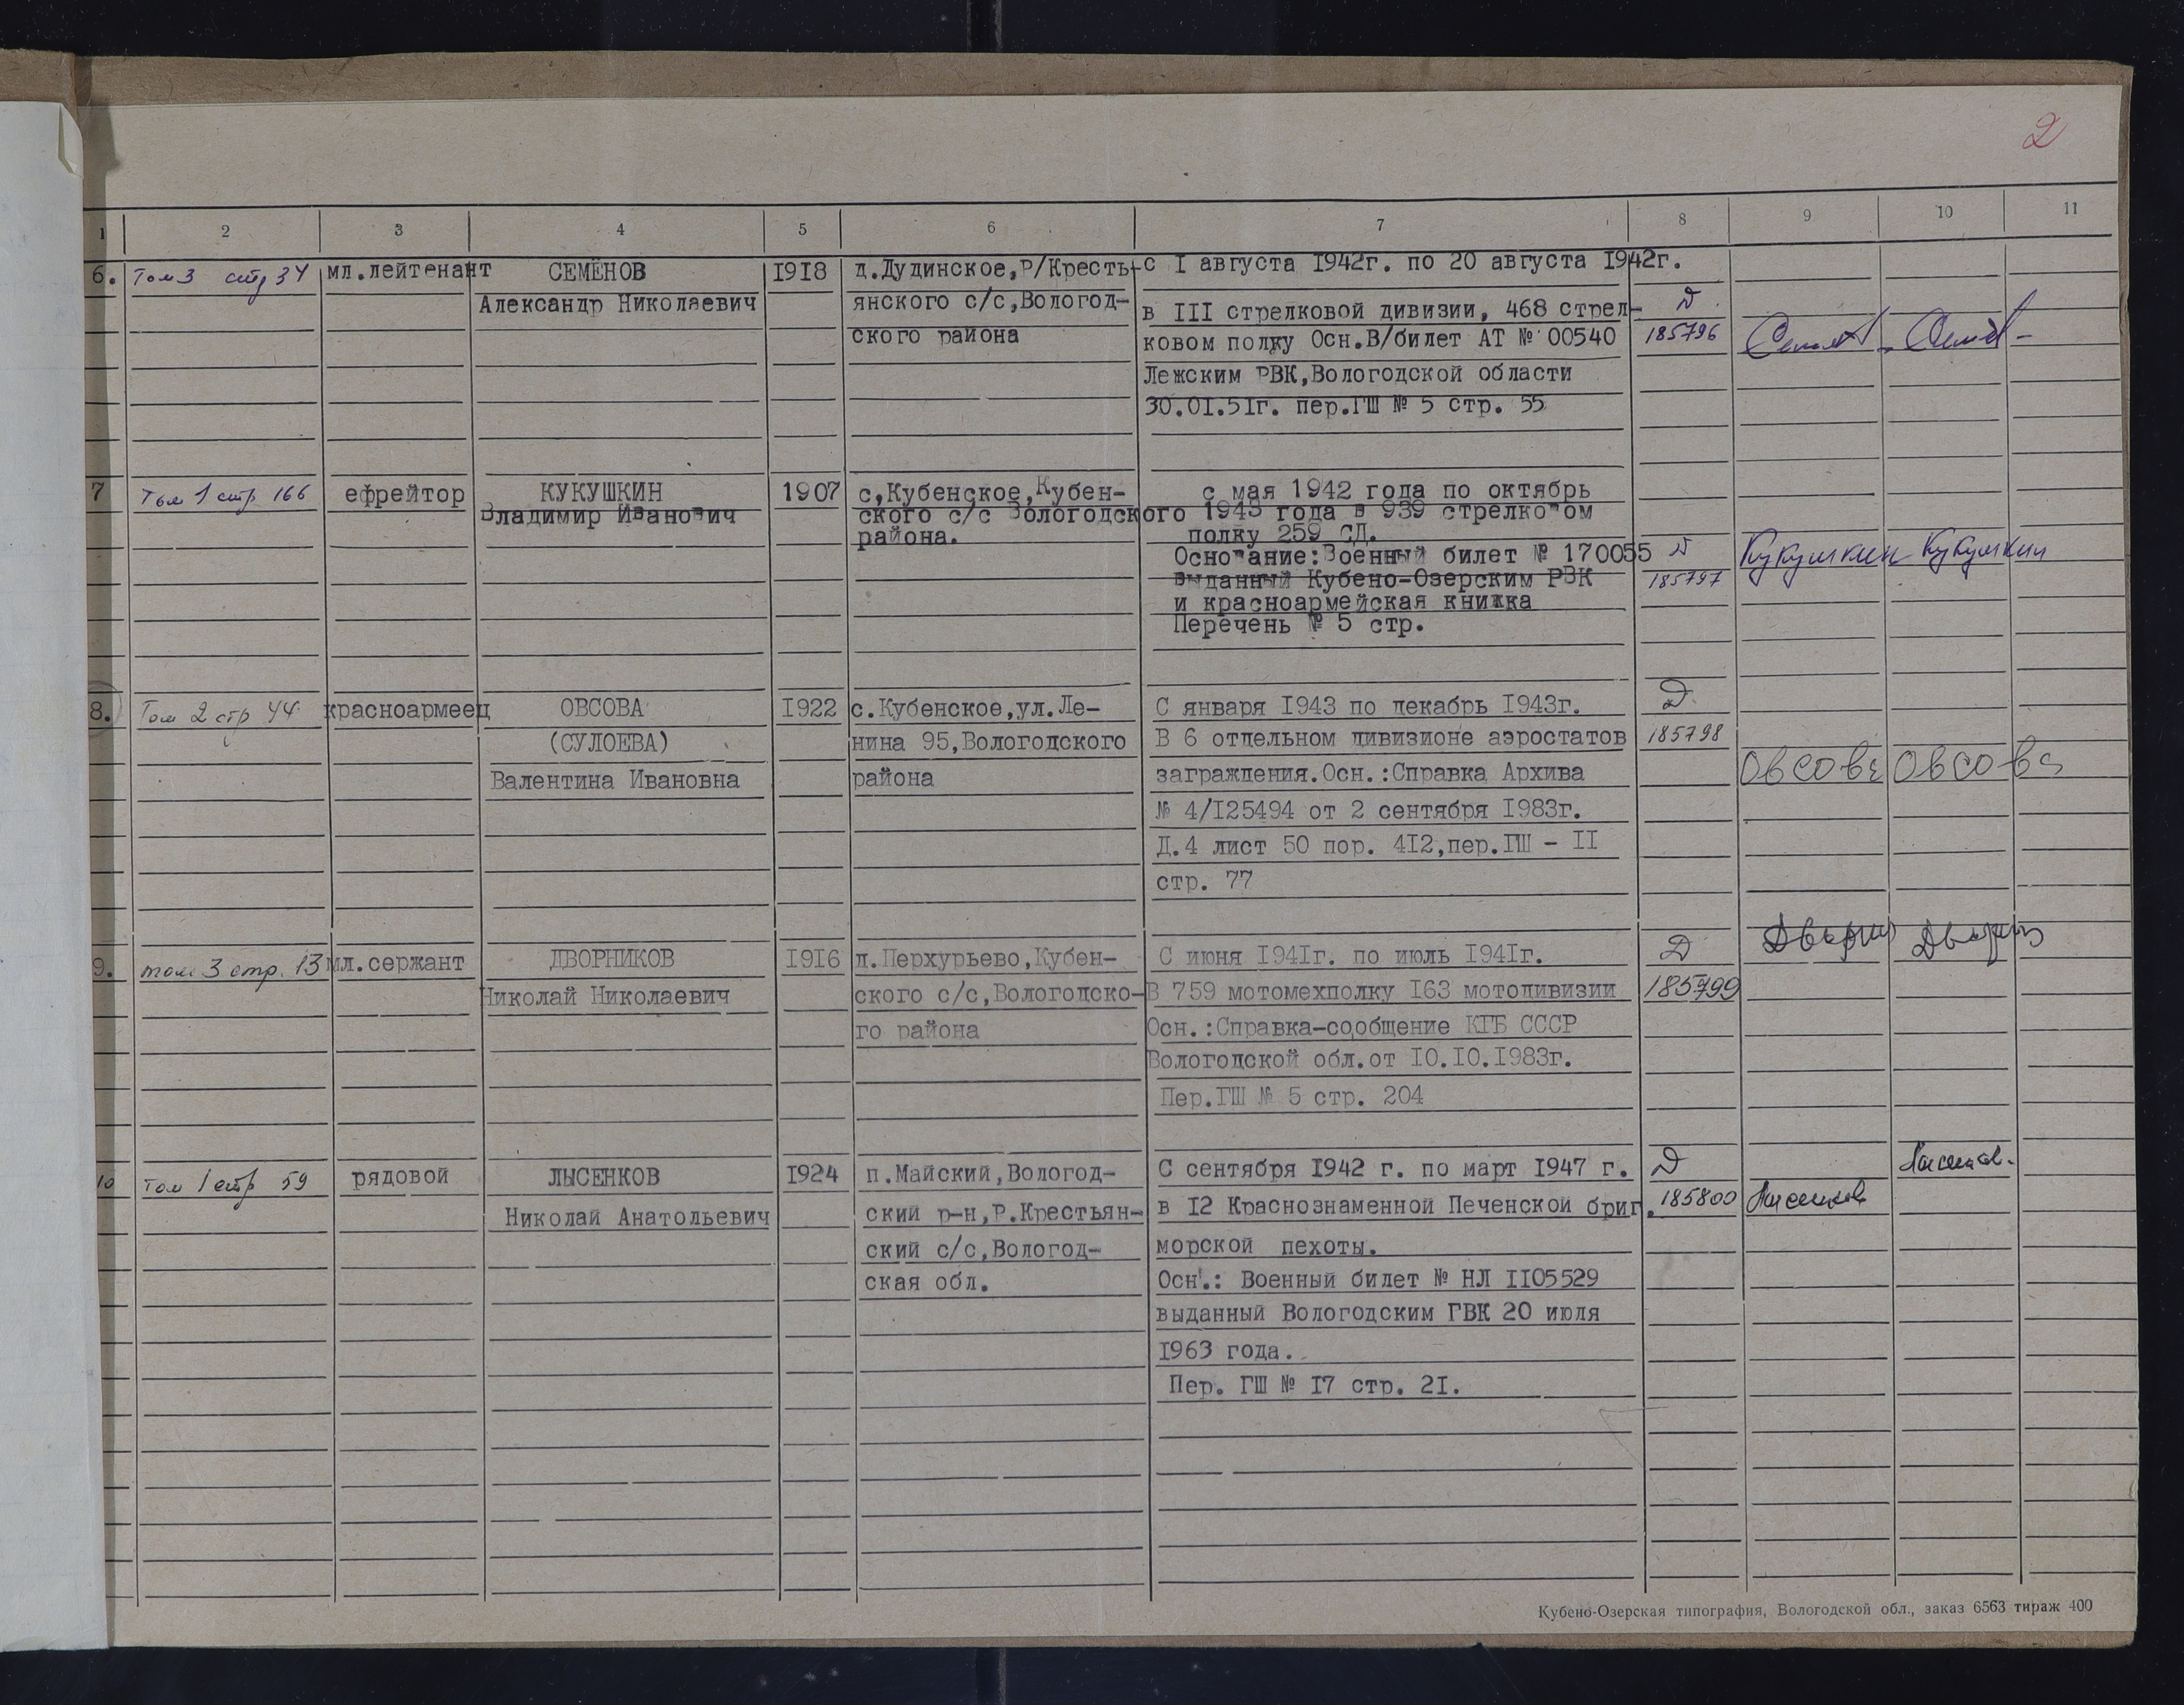 2
1 2 3 4 5 6 7 8 9 10 11
6. Том 3 стр 34 мл.лейтенант СЕМЁНОВ 1918 д.Дудинское,Р/Кресть- с I августа 1942г. по 20 августа 1942г.
Александр Николаевич янского с/с,Вологод- в III стрелковой дивизии, 468 стрел- Д
ского района ковом полку Осн.В/билет АТ № 00540 185796
Лежским РВК,Вологодской области
30.0I.5Iг. пер.ГШ № 5 стр. 55
7 Том 1 стр 166 ефрейтор КУКУШКИН 1907 с,Кубенское,Кубен- с мая 1942 года по октябрь
Владимир Иванович ского с/с Вологодского 1943 года в 939 стрелковом
района. полку 259 СД.
Основание:Военный билет № 170055 Д Кукушкин Кукушкин
выданный Кубено-Озерским РВК 185797
и красноармейская книжка
Перечень № 5 стр.
8. Том 2 стр 44 красноармеец ОВСОВА I922 с.Кубенское,ул.Ле- С января I943 по декабрь I943г. Д
(СУЛОЕВА) нина 95,Вологодского В 6 отдельном дивизионе аэростатов 185798
Валентина Ивановна района заграждения.Осн.:Справка Архива Овсова Овсова
№ 4/I25494 от 2 сентября I983г.
Д.4 лист 50 пор. 4I2,пер.ГШ - II
стр. 77
9. том 3 стр. 13 мл.сержант ДВОРНИКОВ I9I6 д.Перхурьево,Кубен- С июня I94Iг. по июль I94Iг. Д
Николай Николаевич ского с/с,Вологодско- В 759 мотомехполку I63 мотодивизии 185799
го района Осн.:Справка-сообщение КГБ СССР
Вологодской обл.от I0.I0.I983г.
Пер.ГШ № 5 стр. 204
10 Том 1 стр 59 рядовой ЛЫСЕНКОВ I924 п.Майский,Вологод- С сентября I942 г. по март I947 г. Д
Николай Анатольевич ский р-н,Р.Крестьян- в I2 Краснознаменной Печенской бриг. 185800 Лысенков
ский с/с,Вологод- морской пехоты.
ская обл. Осн.: Военный билет № НЛ II05529
выданный Вологодским ГВК 20 июля
I963 года.
Пер. ГШ № I7 стр. 2I.
Кубено-Озерская типография, Вологодской обл., заказ 6563 тираж 400